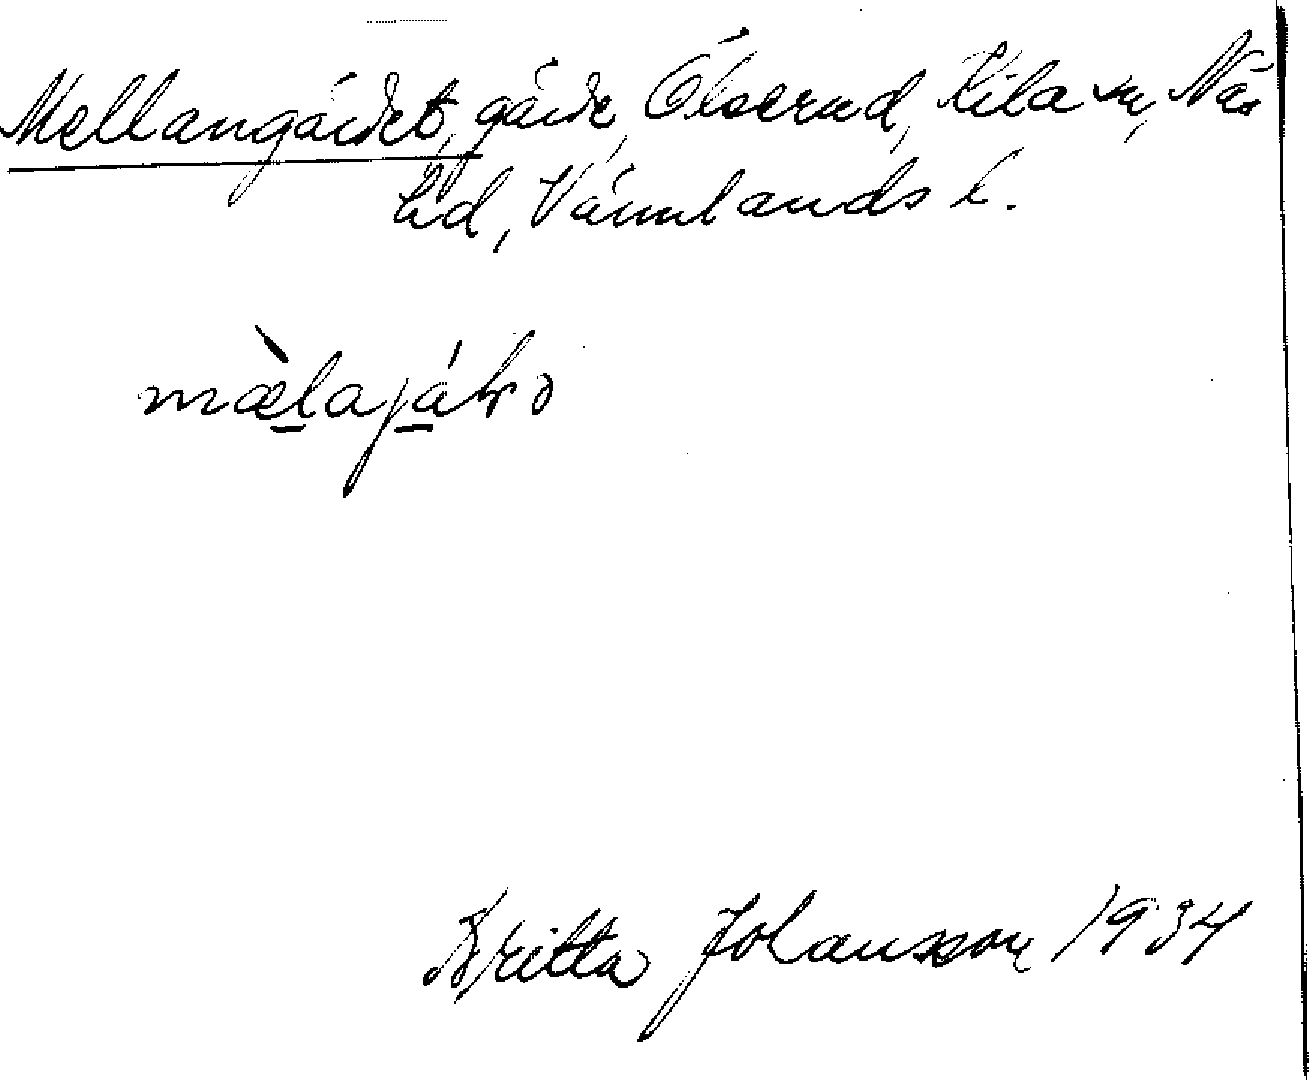 Mellangärdet, gärde, Ölserud, Kila sn, Näs
hd, Värmlands l.
mæ̀lajáḷə
Britta Johansson 1934